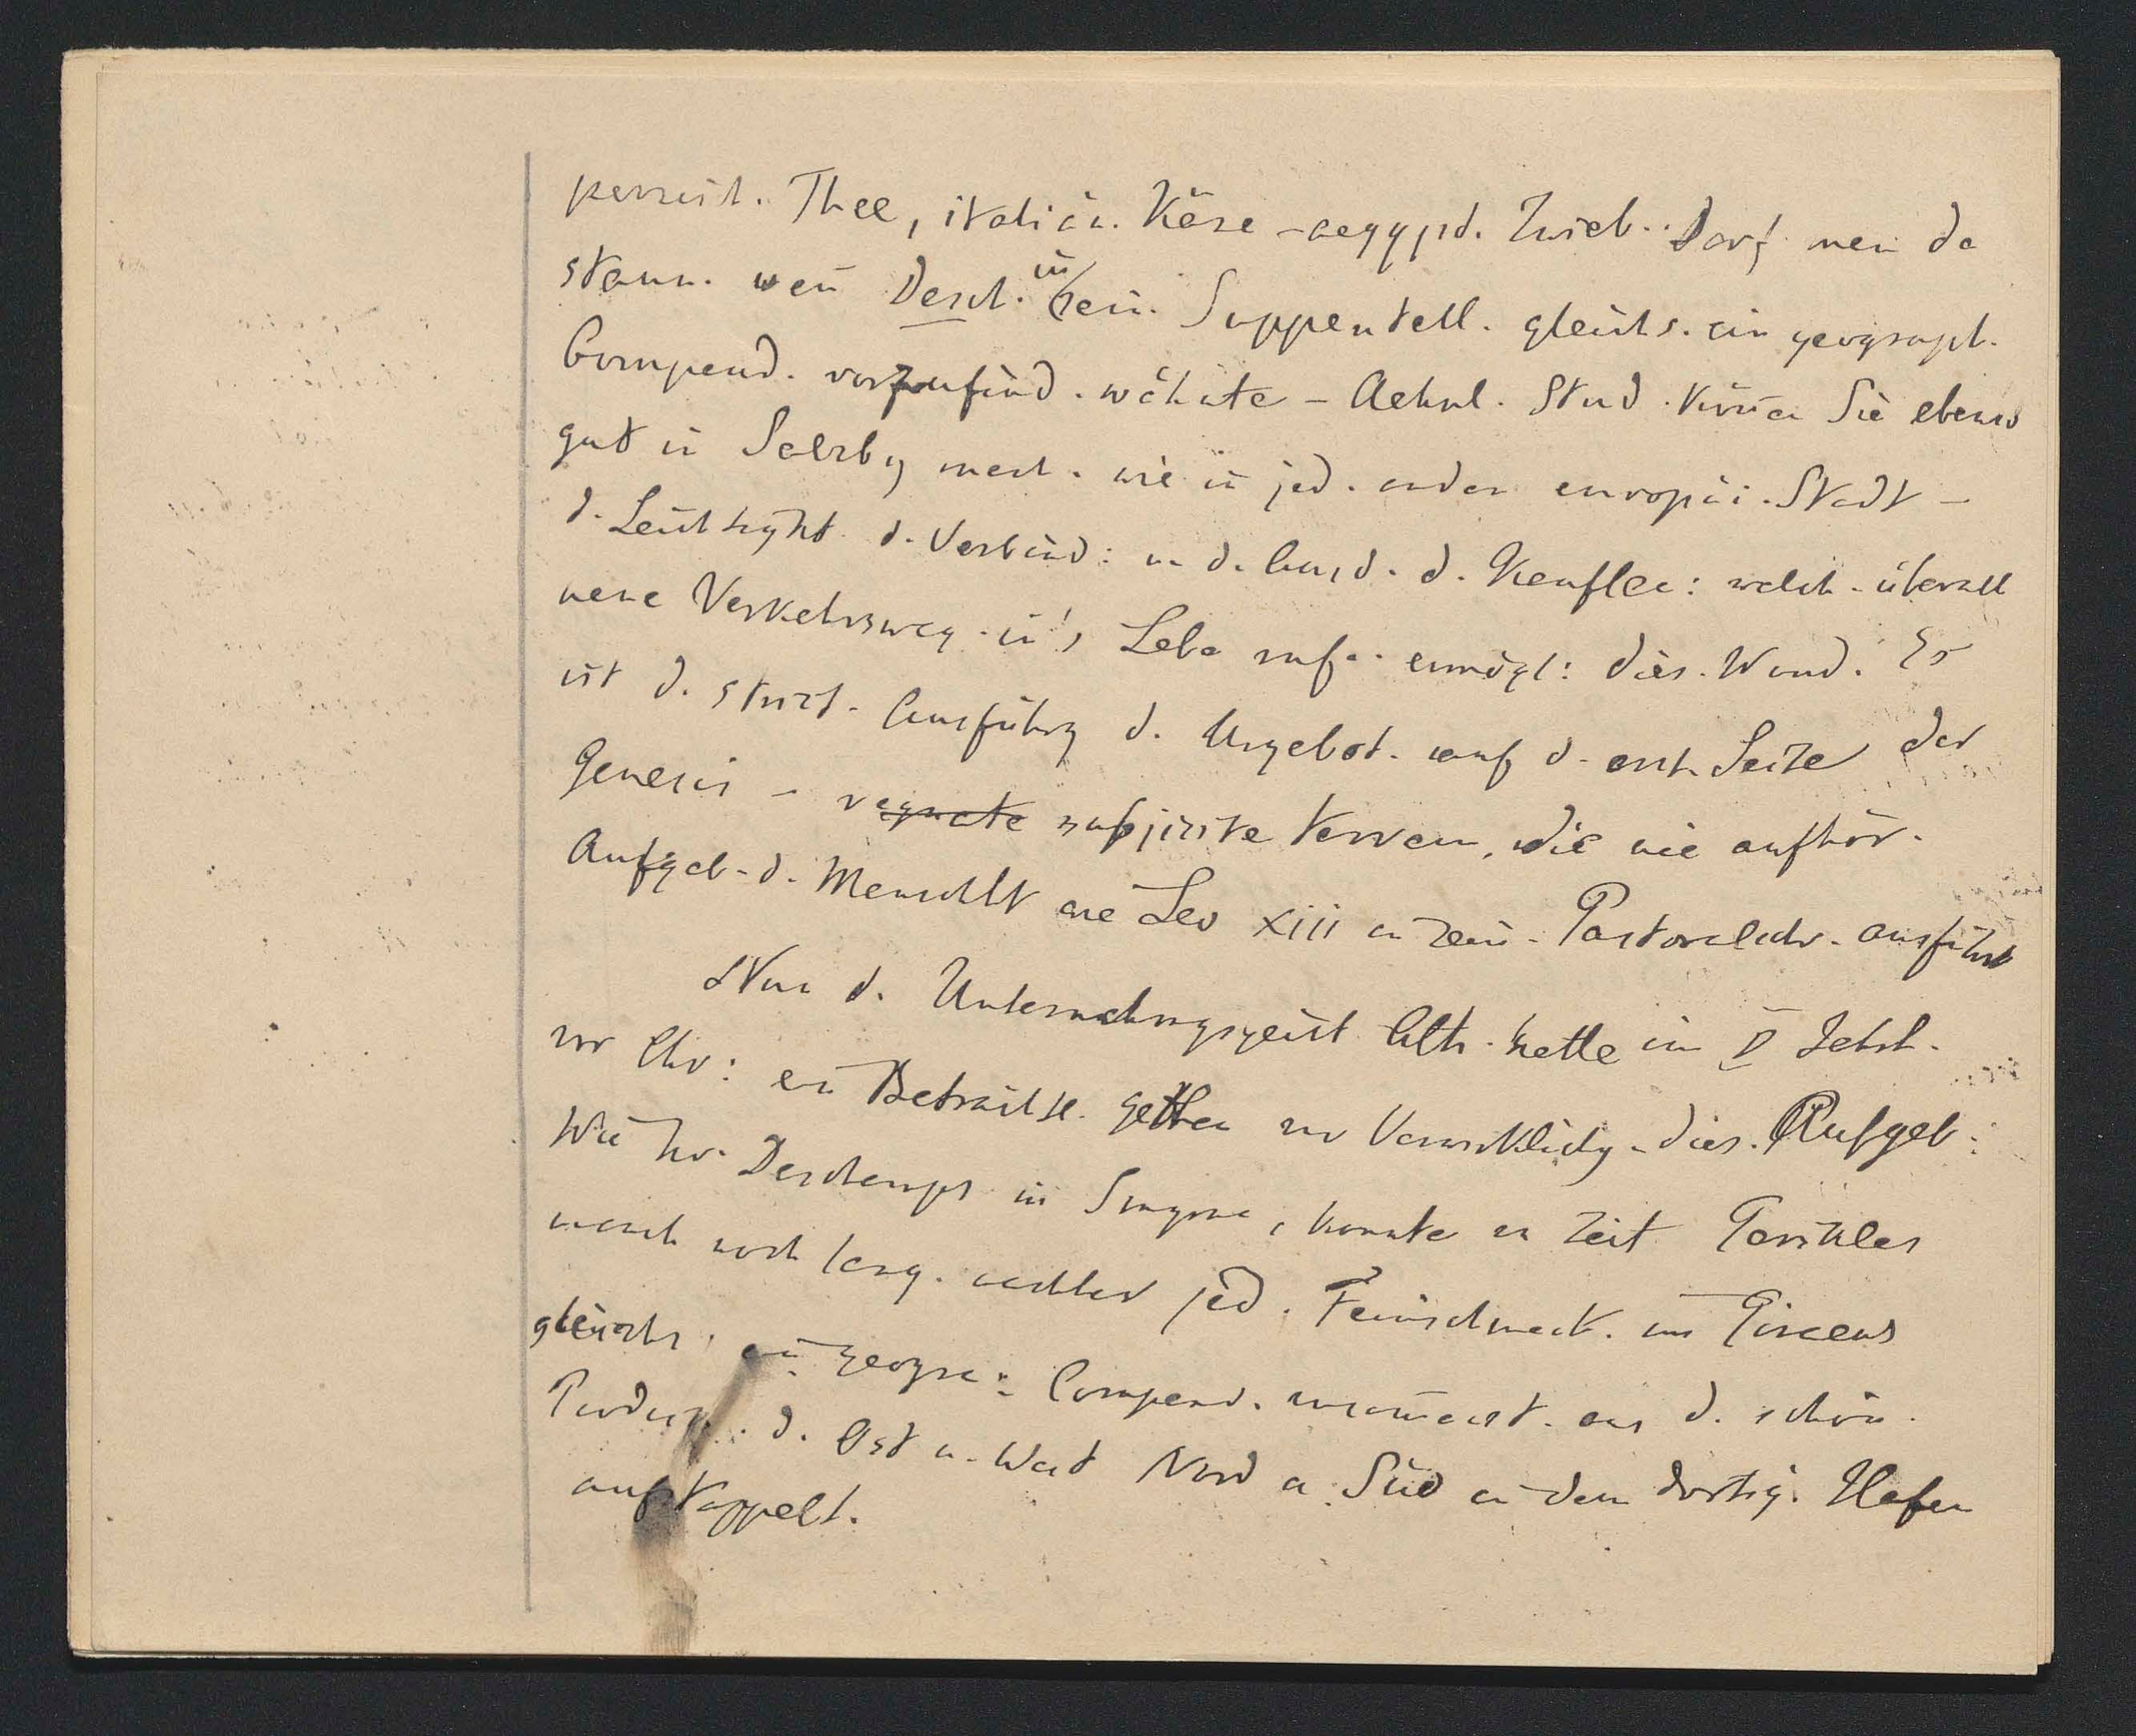 persisch. Thee, italiän. Käse - aegypt. Zwieb. Darf man da
staun. wen̄ Desch. in sein. Suppentell. gleichs. ein geograph.
Compend. vorzufind. wähnte - Aehnl. Stud. kön̄en Sie ebenso
gut in Salzbg mach. wie in jed. andern europäi. Stadt -
d. Leichtigkt d. Verbind: u. d. Ausd. d. Kaufleu: welch. überall
neue Verkehrsweg. in's Lebe rufe. ermögl: dies. Wund. Es
ist d. strict. Ausführg d. Urgebot. auf d. erst. Seite der
Genesis - subjicite terram, die nie aufhör.
Aufgab. d. Menschht wie Leo XIII in sein. Pastoralschr. ausführt
Nun d. Unternehmungsgeist Ath. hatte im V Jahrh.
vor Chr: ein Beträchtl. gethan zur Verwirklichg. dies. Aufgab:
Wie Hr. Deschamps in Smyrna, konnte zu Zeit Perikles
u. noch lang. nachher jed. Feinschmeck. im Piraeus
gleichs. ein geogra: Compend. aus d. schön.
Produkt. d. Ost u. West Nord u. Süd in dem dortig. Hafen
aufstappelt.